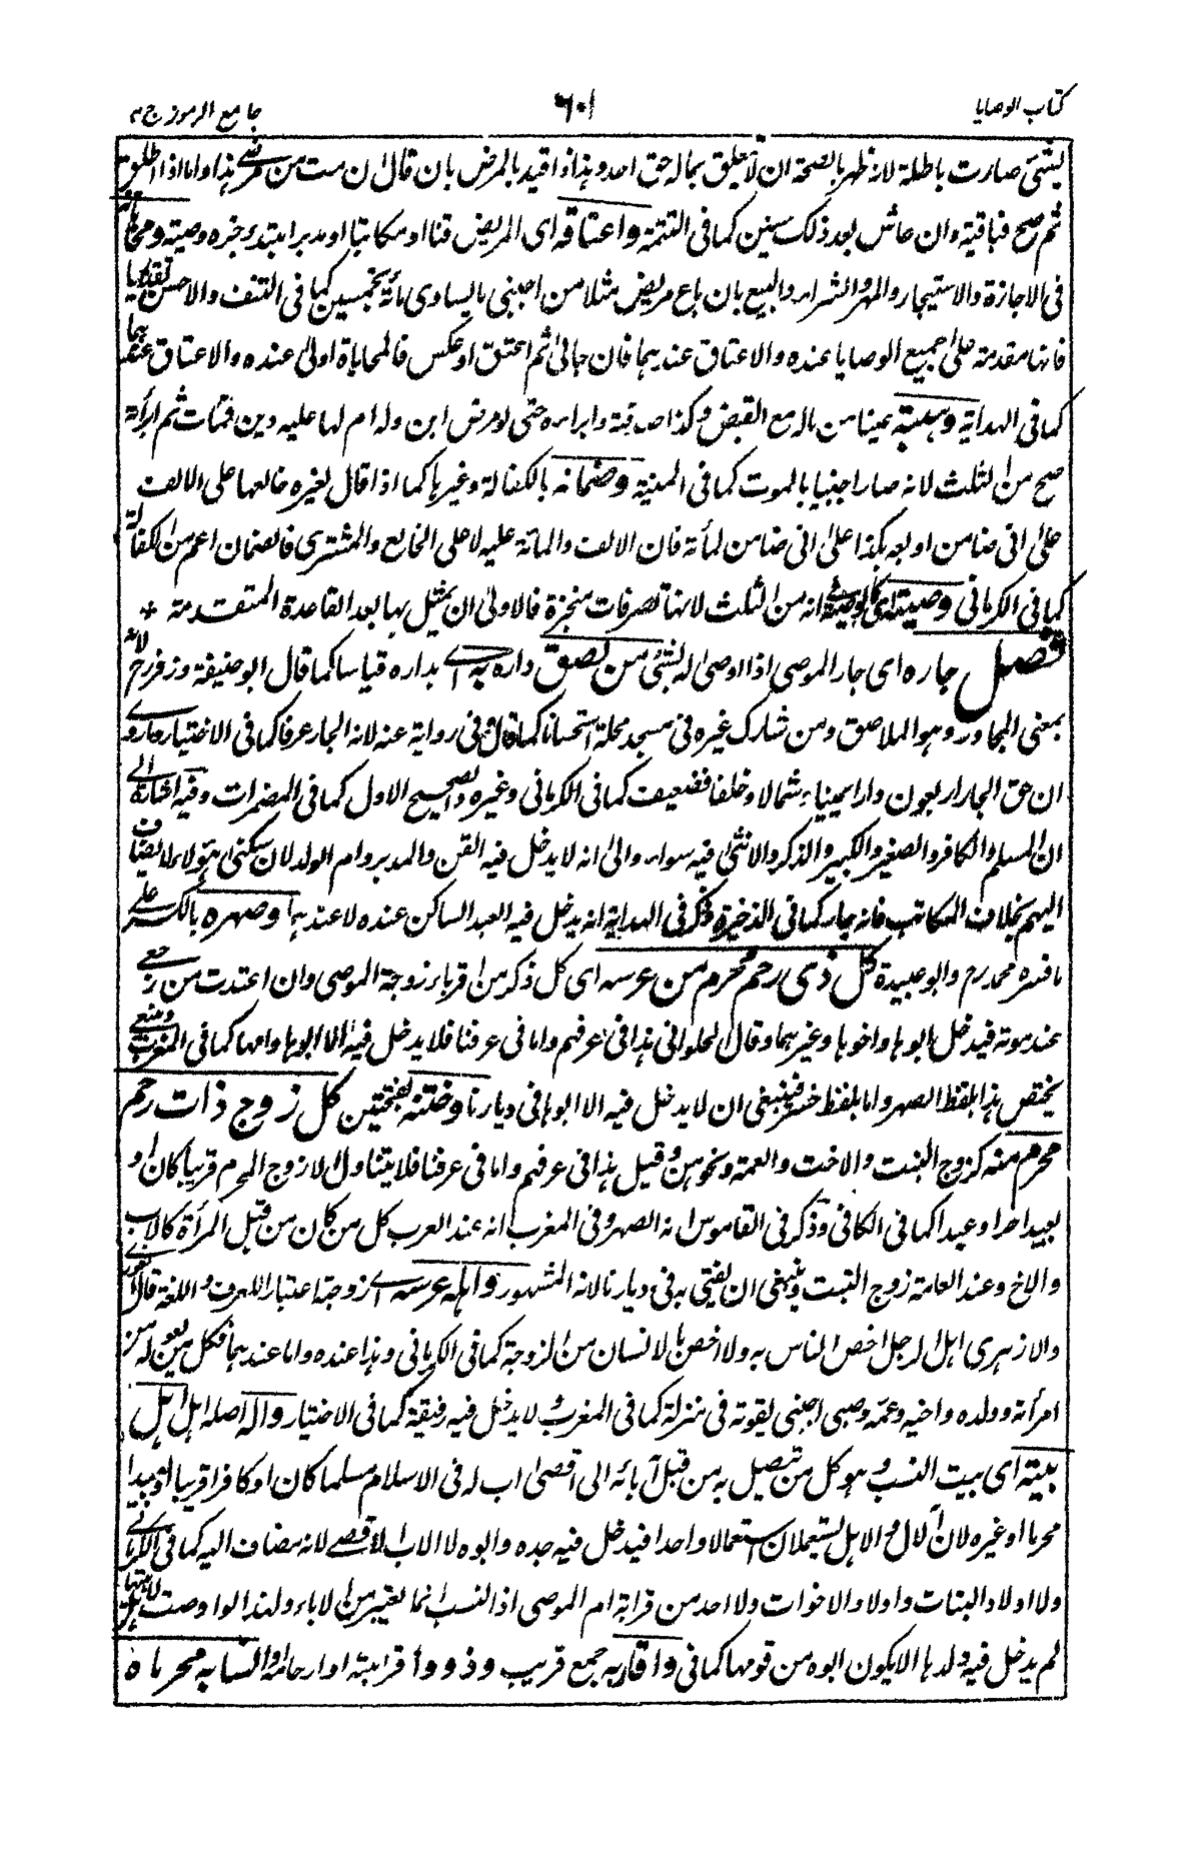 كتاب الوصايا
٦٠١
جامع الرموز ج٢
لشئ صارت باطلة لانه ظهر بالصحة ان لا تعلق بماله حق احد وهذا اذا قيد بالمرض بان قال ان مت من مرضى هذا واما اذا اطلق
ثم صح فباقية وان عاش بعد ذلك سنين كما فى التتمة واعتاقه اى المريض قنا او مكاتبا او مدبرا مبتدأ خبره وصية ومحاباته
فى الاجازة والاستيجار والمهر والشراء والبيع بان باع مريض مثلا من اجنبى ما يساوى مائة بخمسين كما فى النتف والاحسن تقديمها
فانها مقدمة على جميع الوصايا عنده والاعتاق عندهما فان حابى ثم اعتق او عكس فالمحاباة اولى عنده والاعتاق عندهما
كما فى الهداية وهبته يمينا من ماله مع القبض وكذا صدقته وابراءه حتى لو مرض ابن وله ام لها عليه دين فمات ثم ابرأته
صح من الثلث لانه صار اجنبيا بالموت كما فى المنية وضمانه بالكفالة وغيرها كما اذا قال لغيره خالعها على الالف
على انى ضامن او بعه بكذا على انى ضامن لمأة فان الالف والمائة عليه لا على الخالع والمشترى فالضمان اعم من الكفالة
كما فى الكرمانى وصية اى كالوصية فى انه من الثلث لانها تصرفات منجزة فالاولى ان يمثل بها بعد القاعدة المتقدمة *
فصل جاره اى جار الموصى اذا اوصى له بشئ من لصق داره به اى بداره قياسا كما قال ابو حنيفة وزفر رح لانه
بمعنى المجاور وهو الملاصق ومن شارك غيره فى مسجد محلة استحسانا كما قالا وفى رواية عنه لانه الجار عرفا كما فى الاختيار وما روى
ان حق الجار اربعون دارا يمينا وشمالا وخلفا فضعيف كما فى الكرمانى وغيره والصحيح الاول كما فى المضمرات وفيه اشارة الى
ان المسلم والكافر والصغير والكبير والذكر والانثى فيه سواء والى انه لا يدخل فيه القن والمدبر وام الولد لان سكنى هؤلاء لا يضاف
اليهم بخلاف المكاتب فانه جار كما فى الذخيرة وذكر فى الهداية انه يدخل فيه العبد الساكن عنده لا عندهما وصهره بالكسر على
ما فسره محمد رح وابو عبيدة كل ذى رحم محرم من عرسه اى كل ذكر من اقرباء زوجة الموصى وان اعتدت من رجعى
عند موته فيدخل ابوها واخوها وغيرهما وقال الحلوانى هذا فى عرفهم واما فى عرفنا فلا يدخل فيه الا ابوها وامها كما فى المغرب وينبغى
يختص هذا بلفظ الصهر واما بلفظ خسر فينبغى ان لا يدخل فيه الا ابوها فى ديارنا وختنه بفتحتين كل زوج ذات رحم
محرم منه كزوج البنت والاخت والعمة ونحوهن وقيل هذا فى عرفهم واما فى عرفنا فلا يتناول الا زوج المحرم قريبا كان او
بعيدا حرا او عبدا كما فى الكافى وذكر فى القاموس انه الصهر وفى المغرب انه عند العرب كل من كان من قبل المرأة كالاب
والاخ وعند العامة زوج البنت وينبغى ان يفتى به فى ديارنا لانه المشهور واهله عرسه اى زوجة اعتبارا للعرف واللغة قال الغورى
والازهرى اهل الرجل اخص الناس به ولا اخص بالانسان من الزوجة كما فى الكرمانى وهذا عنده واما عندهما فكل من يعوله من
امرأته وولده واخيه وعمه وصبى اجنبى يقوته فى منزله كما فى المغرب لا يدخل فيه رقيقه كما فى الاختيار وآله اصله اهل اهل
بيته اى بيت النسب وهو كل من يتصل به من قبل آبائه الى اقصى اب له فى الاسلام مسلما كان او كافرا قريبا او بعيدا
محرما او غيره لان الآل والاهل يستعملان استعمالا واحدا فيدخل فيه جده وابوه لا الاب الاقصى لانه مضاف اليه كما فى الكرمانى
ولا اولاد البنات واولاد الاخوات ولا احد من قرابة ام الموصى اذ النسب انما يعتبر من الاباء ولهذا لو اوصت لاهل بيتها
لم يدخل فيه ولدها الا يكون ابوه من قومها كما فى واقاربه جمع قريب وذووا قرابته او ارحامه وانسابه محرماه